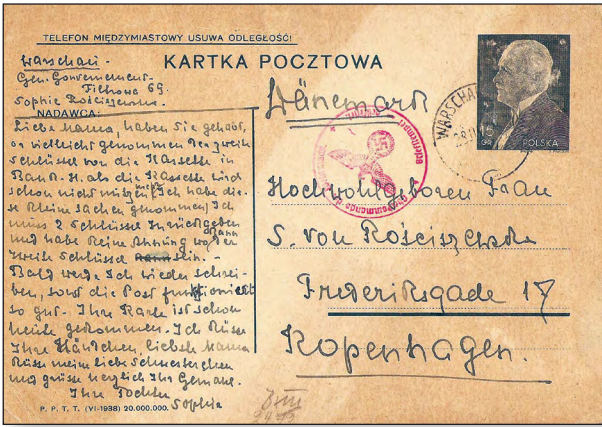 TELEFON MIĘDZYMIASTOWY USUWA ODLEGŁOŚĆ!
KARTKA POCZTOWA
Warschau
Gen. Gouvernement
Filtrowa 69.
Sophie Rościszewska
NADAWCA:
Liebe Mama, haben Sie gehabt,
o. vielleicht genommen den zweiten
Schlüssel von die Kassette in
Bank H. als die Kassette sind
schon nicht mehr Ich habe die-
se kleine Sachen genommen. Ich
muss 2 Schlüssel zurückgeben
und habe keine Ahnung wo der
zweite Schlüssel kann sein. -
Bald werde Ich wieder schrei-
ben, sonst die Post funktioniert
so gut. Ihre Karte ist schon
heute gekommen. Ich küsse
Ihre Händchen, liebste Mama
Küsse meine liebe Schwesterchen
und grüsse herzlich Ihr Gemahl.
Ihre Tochter
Sophie
P. P. T. T. (VI-1938) 20.000.000.
Dänemark
WARSCHAU
15
GR
POLSKA
Hochwohlgeboren Frau
S. von Rościszewska
Frederiksgade 17
Kopenhagen.